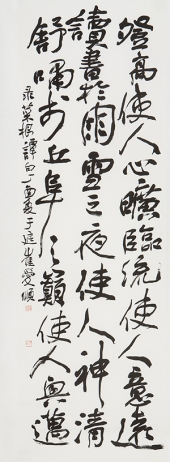 登高使人心曠臨流使人意遠
讀書於雨雪之夜使人神清
舒嘯於丘阜之巔使人興邁
录菜根譚句丁酉夏于延崔愛順